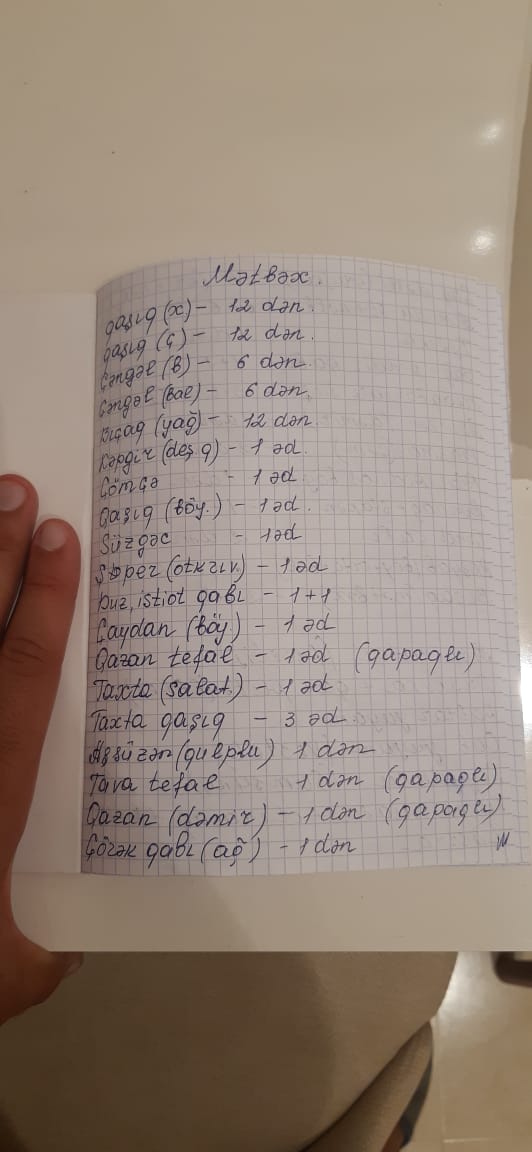 Mətbəx.
qaşıq (x) - 12 dən.
qaşıq (ç) - 12 dən.
Çəngəl (b) - 6 dən.
Çəngəl (bal) - 6 dən.
Bıçaq (yağ) - 12 dən
Kəpgir (deş q) - 1 əd.
Çömçə - 1 əd.
Qaşıq (böy.) - 1 əd.
Süzgəc - 1əd
(otkrıv.) - 1 əd
Duz, istiot qabı - 1+1
Çaydan (böy) - 1 əd
Qazan tefal - 1 əd (qapaqlı)
Taxta (salat.) - 1 əd
Taxta qaşıq - 3 əd
Aşsüzən (qulplu) 1 dən
Tava tefal 1 dən (qapaqlı)
Qazan (dəmir) - 1 dən (qapaqlı)
Çörək qabı (ağ) - 1 dən